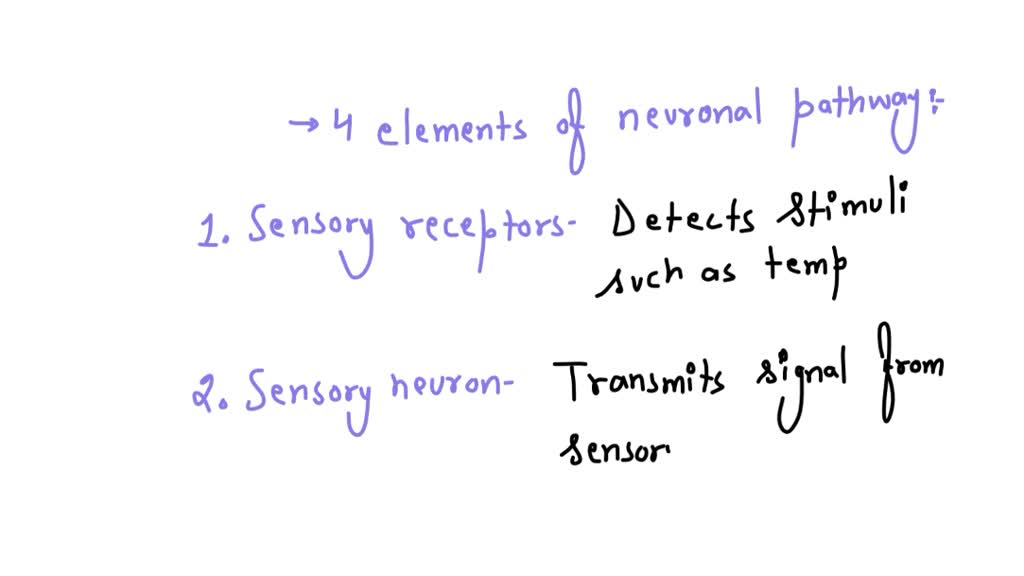 → 4 elements of neuronal pathway:-
1. Sensory receptors- Detects stimuli
such as temp
2. Sensory neuron- Transmits signal from
sensor